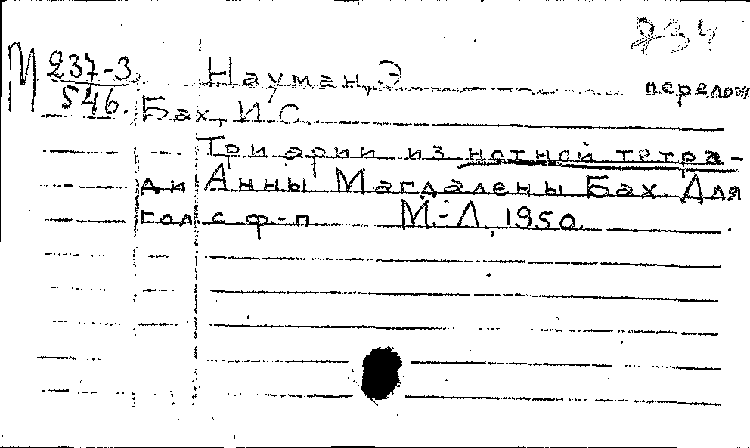 234
М 237-3
546.
Науман, Э
перелож
Бах, И.С.
Три арии из нотной тетра-
ди Анны Магдалены Бах Для
гол. с ф-п М.-Л, 1950.